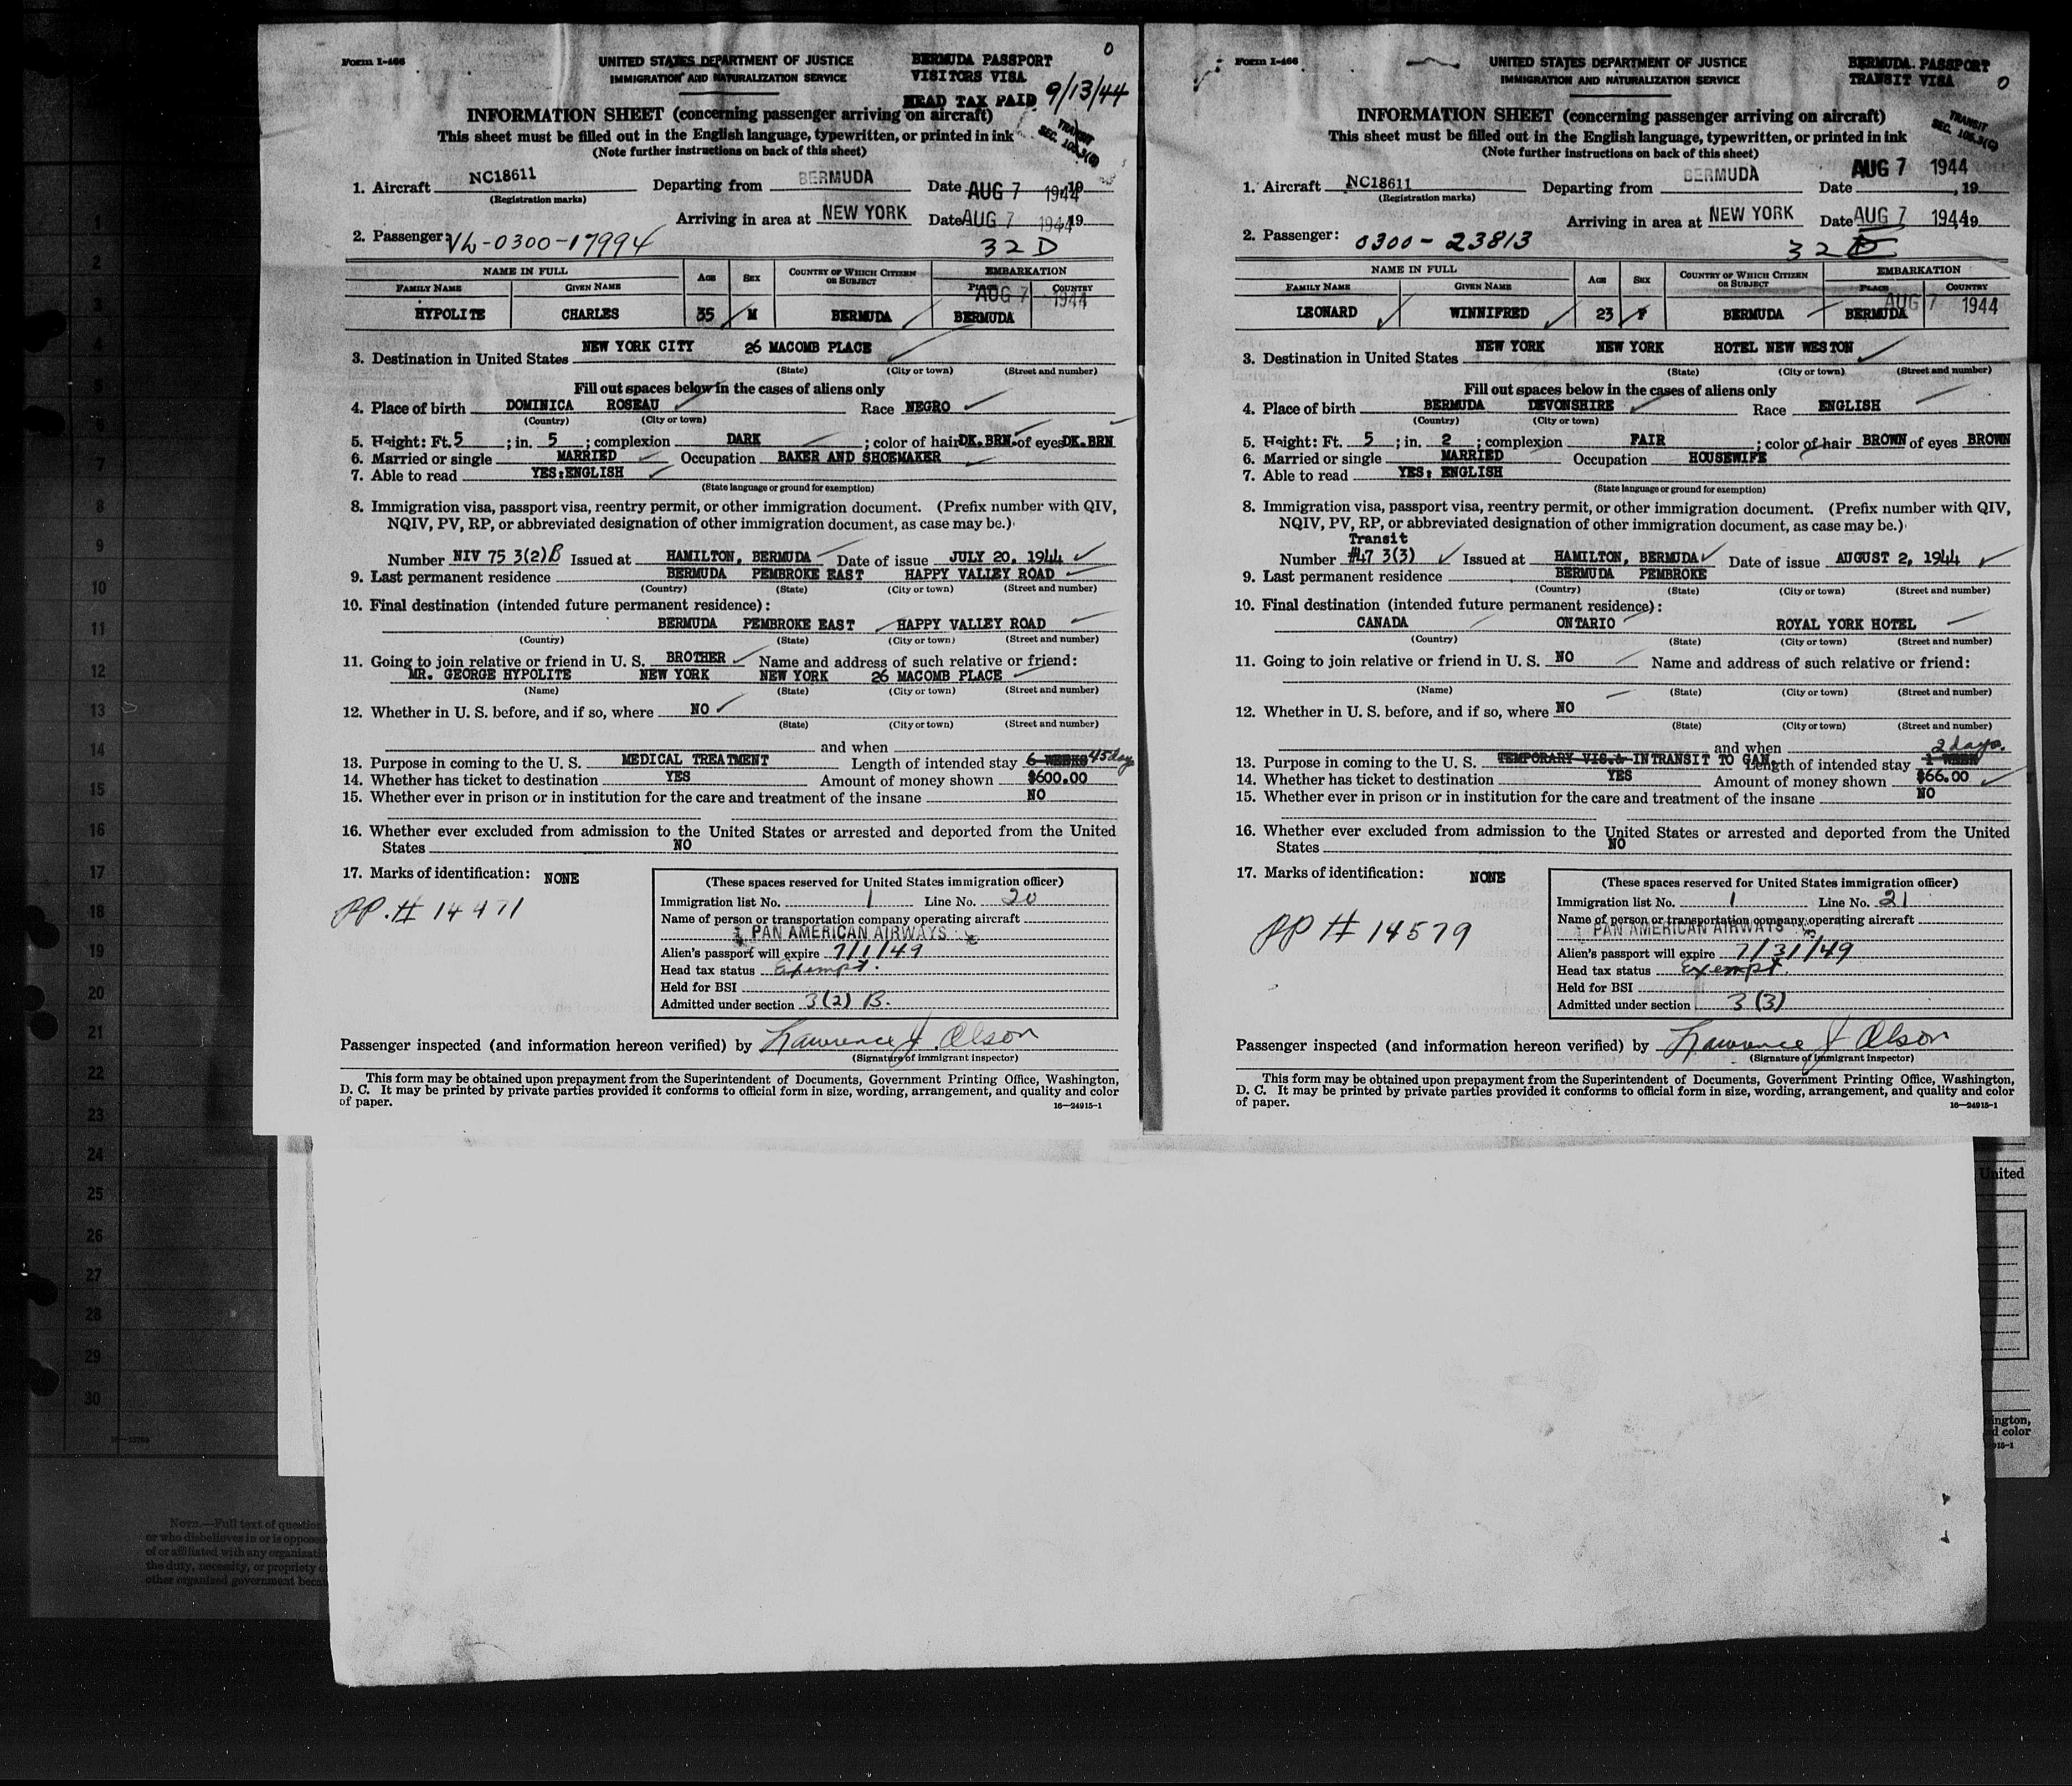 Form I-466
UNITED STATES DEPARTMENT OF JUSTICE
IMMIGRATION AND NATURALIZATION SERVICE
BERMUDA PASSPORT
VISITORS VISA
HEAD TAX PAID 9/13/44
0
INFORMATION SHEET (concerning passenger arriving on aircraft)
This sheet must be filled out in the English language, typewritten, or printed in ink
(Note further instructions on back of this sheet)
TRANSIT
SEC. 105.3(C)
1. Aircraft NC18611 Departing from BERMUDA Date AUG 7 1944, 19
(Registration marks)
Arriving in area at NEW YORK Date AUG 7 1944 19
2. Passenger: VL-0300-17994 32 D
NAME IN FULL Age Sex Country of Which Citizen or Subject EMBARKATION
Family Name Given Name Place Country
AUG 7 1944
HYPOLITE CHARLES 35 M BERMUDA BERMUDA
3. Destination in United States NEW YORK CITY 26 MACOMB PLACE
(State) (City or town) (Street and number)
Fill out spaces below in the cases of aliens only
4. Place of birth DOMINICA ROSEAU Race NEGRO
(Country) (City or town)
5. Height: Ft. 5; in. 5; complexion DARK; color of hair DK.BRN. of eyes DK.BRN
6. Married or single MARRIED Occupation BAKER AND SHOEMAKER
7. Able to read YES:ENGLISH
(State language or ground for exemption)
8. Immigration visa, passport visa, reentry permit, or other immigration document. (Prefix number with QIV,
NQIV, PV, RP, or abbreviated designation of other immigration document, as case may be.)
Number NIV 75 3(2)B Issued at HAMILTON, BERMUDA Date of issue JULY 20, 1944
9. Last permanent residence BERMUDA PEMBROKE EAST HAPPY VALLEY ROAD
(Country) (State) (City or town) (Street and number)
10. Final destination (intended future permanent residence):
BERMUDA PEMBROKE EAST HAPPY VALLEY ROAD
(Country) (State) (City or town) (Street and number)
11. Going to join relative or friend in U. S. BROTHER Name and address of such relative or friend:
MR. GEORGE HYPOLITE NEW YORK NEW YORK 26 MACOMB PLACE
(Name) (State) (City or town) (Street and number)
12. Whether in U. S. before, and if so, where NO
(State) (City or town) (Street and number)
and when
13. Purpose in coming to the U. S. MEDICAL TREATMENT Length of intended stay 6 WEEKS 45 days
14. Whether has ticket to destination YES Amount of money shown $600.00
15. Whether ever in prison or in institution for the care and treatment of the insane NO
16. Whether ever excluded from admission to the United States or arrested and deported from the United
States NO
17. Marks of identification: NONE
PP. # 14471
(These spaces reserved for United States immigration officer)
Immigration list No. 1 Line No. 20
Name of person or transportation company operating aircraft
PAN AMERICAN AIRWAYS
Alien's passport will expire 7/1/49
Head tax status Exempt.
Held for BSI
Admitted under section 3(2) B.
Passenger inspected (and information hereon verified) by Lawrence J. Olson
(Signature of immigrant inspector)
This form may be obtained upon prepayment from the Superintendent of Documents, Government Printing Office, Washington,
D. C. It may be printed by private parties provided it conforms to official form in size, wording, arrangement, and quality and color
of paper.
16—24915-1
Form I-466
UNITED STATES DEPARTMENT OF JUSTICE
IMMIGRATION AND NATURALIZATION SERVICE
BERMUDA PASSPORT
TRANSIT VISA
0
INFORMATION SHEET (concerning passenger arriving on aircraft)
This sheet must be filled out in the English language, typewritten, or printed in ink
(Note further instructions on back of this sheet)
TRANSIT
SEC. 105.3(C)
1. Aircraft NC18611 Departing from BERMUDA Date AUG 7 1944, 19
(Registration marks)
Arriving in area at NEW YORK Date AUG 7 1944, 19
2. Passenger: 0300-23813 32 D
NAME IN FULL Age Sex Country of Which Citizen or Subject EMBARKATION
Family Name Given Name Place Country
AUG 7 1944
LEONARD WINNIFRED 23 F BERMUDA BERMUDA
3. Destination in United States NEW YORK NEW YORK HOTEL NEW WESTON
(State) (City or town) (Street and number)
Fill out spaces below in the cases of aliens only
4. Place of birth BERMUDA DEVONSHIRE Race ENGLISH
(Country) (City or town)
5. Height: Ft. 5; in. 2; complexion FAIR; color of hair BROWN of eyes BROWN
6. Married or single MARRIED Occupation HOUSEWIFE
7. Able to read YES: ENGLISH
(State language or ground for exemption)
8. Immigration visa, passport visa, reentry permit, or other immigration document. (Prefix number with QIV,
NQIV, PV, RP, or abbreviated designation of other immigration document, as case may be.)
Transit
Number #47 3(3) Issued at HAMILTON, BERMUDA Date of issue AUGUST 2, 1944
9. Last permanent residence BERMUDA PEMBROKE
(Country) (State) (City or town) (Street and number)
10. Final destination (intended future permanent residence):
CANADA ONTARIO ROYAL YORK HOTEL
(Country) (State) (City or town) (Street and number)
11. Going to join relative or friend in U. S. NO Name and address of such relative or friend:
(Name) (State) (City or town) (Street and number)
12. Whether in U. S. before, and if so, where NO
(State) (City or town) (Street and number)
and when
2 days.
13. Purpose in coming to the U. S. TEMPORARY VIS.& INTRANSIT TO CAN. Length of intended stay 1 WEEK
14. Whether has ticket to destination YES Amount of money shown $66.00
15. Whether ever in prison or in institution for the care and treatment of the insane NO
16. Whether ever excluded from admission to the United States or arrested and deported from the United
States NO
17. Marks of identification: NONE
PP # 14579
(These spaces reserved for United States immigration officer)
Immigration list No. 1 Line No. 21
Name of person or transportation company operating aircraft
PAN AMERICAN AIRWAYS
Alien's passport will expire 7/31/49
Head tax status Exempt.
Held for BSI
Admitted under section 3 (3)
Passenger inspected (and information hereon verified) by Lawrence J Olson
(Signature of immigrant inspector)
This form may be obtained upon prepayment from the Superintendent of Documents, Government Printing Office, Washington,
D. C. It may be printed by private parties provided it conforms to official form in size, wording, arrangement, and quality and color
of paper.
16—24915-1
1
2
3
4
5
6
7
8
9
10
11
12
13
14
15
16
17
18
19
20
21
22
23
24
25
26
27
28
29
30
NOTE.—Full text of question
or who disbelieves in or is opposed
of or affiliated with any organizatio
the duty, necessity, or propriety o
other organized government becau
United
ington,
d color
915-1